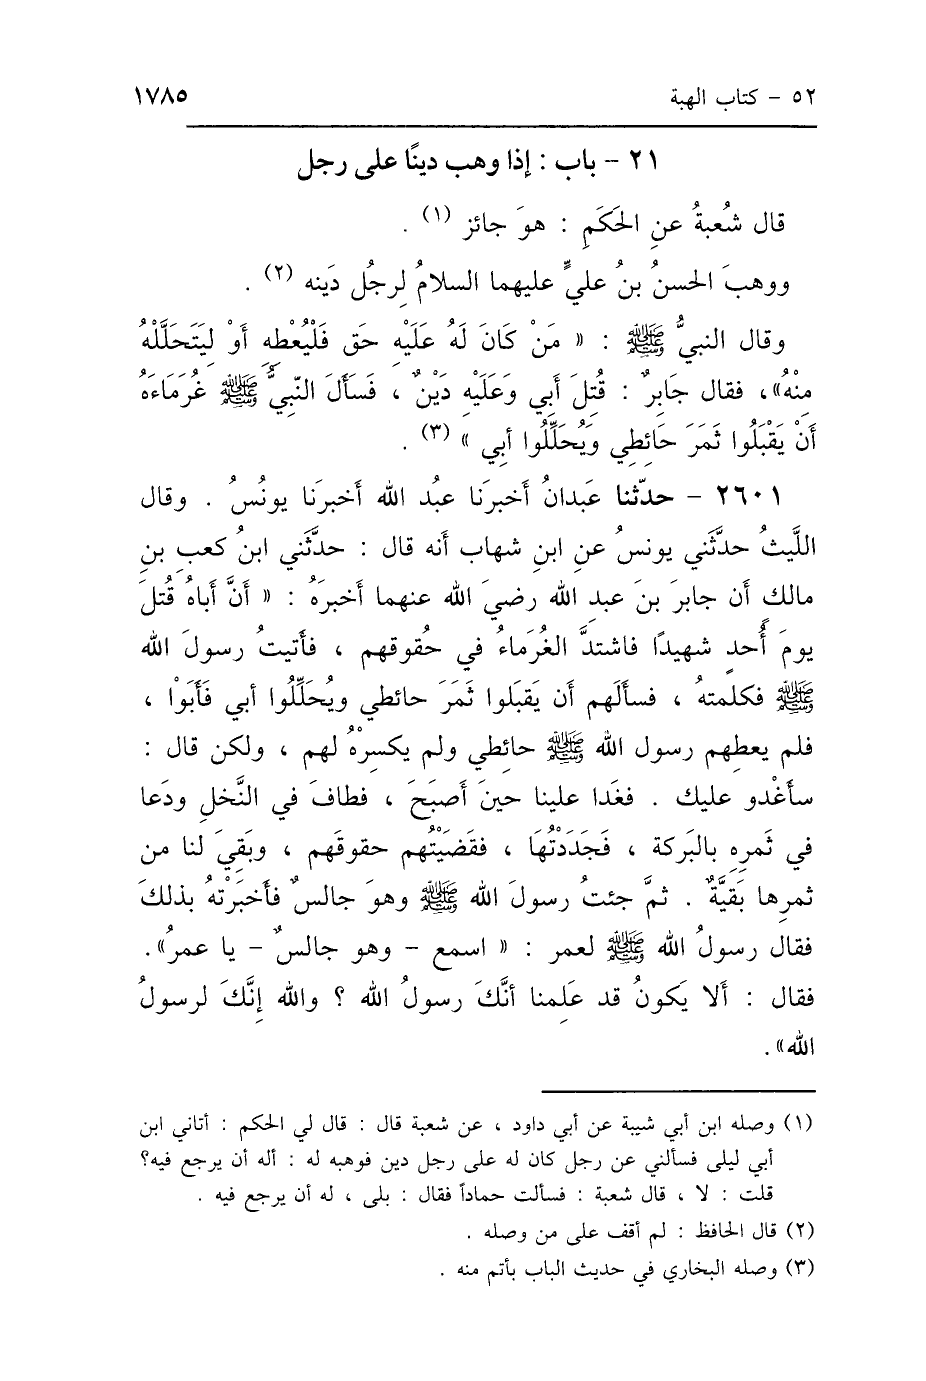 ٥٢ - كتاب الهبة ١٧٨٥
٢١ - باب : إذا وهب دينًا على رجل
قال شُعبةُ عنِ الحَكَمِ : هوَ جائز (١) .
ووهبَ الحسنُ بنُ عليٍّ عليهما السلامُ لِرجُل دَينه (٢) .
وقال النبيُّ ﷺ : « مَنْ كَانَ لَهُ عَلَيْهِ حَق فَلْيُعْطِهِ أَوْ لِيَتَحَلَّلْهُ
مِنْهُ»، فقال جَابِرٌ : قُتِلَ أَبِي وَعَلَيْهِ دَيْنٌ ، فَسَأَلَ النّبِيُّ ﷺ غُرَمَاءَهُ
أَنْ يَقْبَلُوا ثَمَرَ حَائِطِي وَيُحَلِّلُوا أبِي » (٣) .
٢٦٠١ - حدّثنا عَبدانُ أخبرَنا عبدُ الله أخبرَنا يونُسُ . وقال
اللَّيثُ حدَّثَني يونسُ عنِ ابنِ شهاب أنه قال : حدَّثَني ابنُ كعبِ بنِ
مالكٍ أن جابرَ بنَ عبدِ الله رضيَ الله عنهما أخبرَهُ : « أنَّ أباهُ قُتلَ
يومَ أُحدٍ شهيدًا فاشتدَّ الغُرَماءُ في حُقوقهم ، فأتيتُ رسولَ الله
ﷺ فكلمتهُ ، فسألَهم أن يَقبَلوا ثَمَرَ حائطي ويُحَلِّلُوا أبي فَأَبَوْا ،
فلم يعطِهم رسول الله ﷺ حائِطي ولم يكسِرْهُ لهم ، ولكن قال :
سأغْدو عليك . فغَدا علينا حينَ أصبَحَ ، فطافَ في النَّخلِ ودَعا
في ثَمرِهِ بالبَركة ، فَجَدَدْتُهَا ، فقَضَيْتُهم حقوقَهم ، وبَقِيَ لنا من
ثمرِها بَقيَّةٌ . ثمَّ جئتُ رسولَ الله ﷺ وهوَ جالسٌ فأَخبَرْتهُ بذلكَ
فقال رسولُ الله ﷺ لعمر : « اسمع - وهو جالسٌ - يا عمرُ».
فقال : أَلا يَكونُ قد عَلِمنا أنَّكَ رسولُ الله ؟ والله إنَّكَ لرسولُ
الله».
(١) وصله ابن أبي شيبة عن أبي داود ، عن شعبة قال : قال لي الحكم : أتاني ابن
أبي ليلى فسألني عن رجل كان له على رجل دين فوهبه له : أله أن يرجع فيه؟
قلت : لا ، قال شعبة : فسألت حماداً فقال : بلى ، له أن يرجع فيه .
(٢) قال الحافظ : لم أقف على من وصله .
(٣) وصله البخاري في حديث الباب بأتم منه .